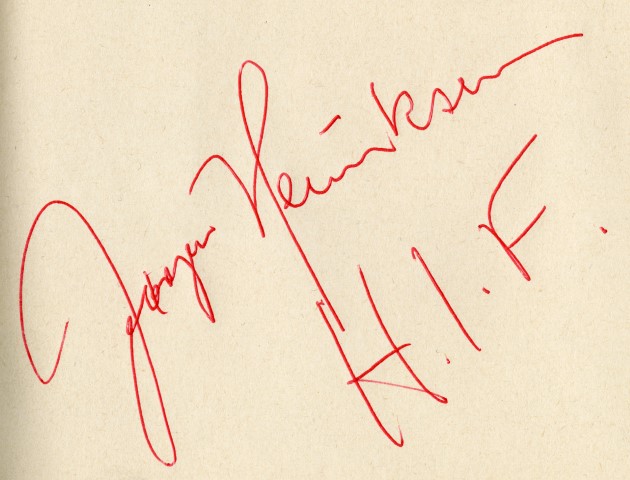 Jørgen Henriksen
H.I.F.